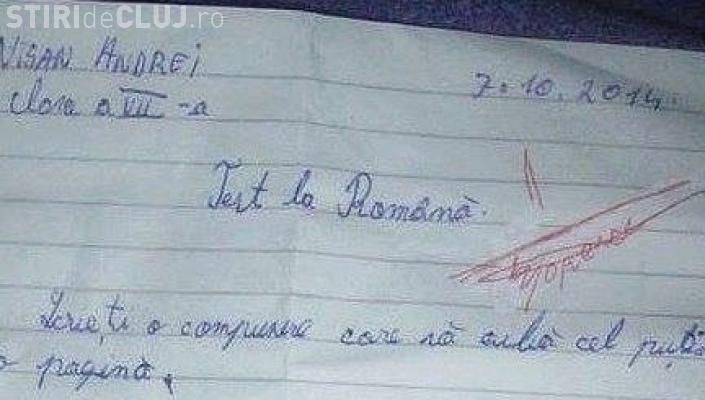 ȘTIRIdeCLUJ.ro
NIȘAN ANDREI
Clasa a VII-a
7.10.2014
Test la Română.
Scrieți o compunere care să aibă cel puțin
o pagină.